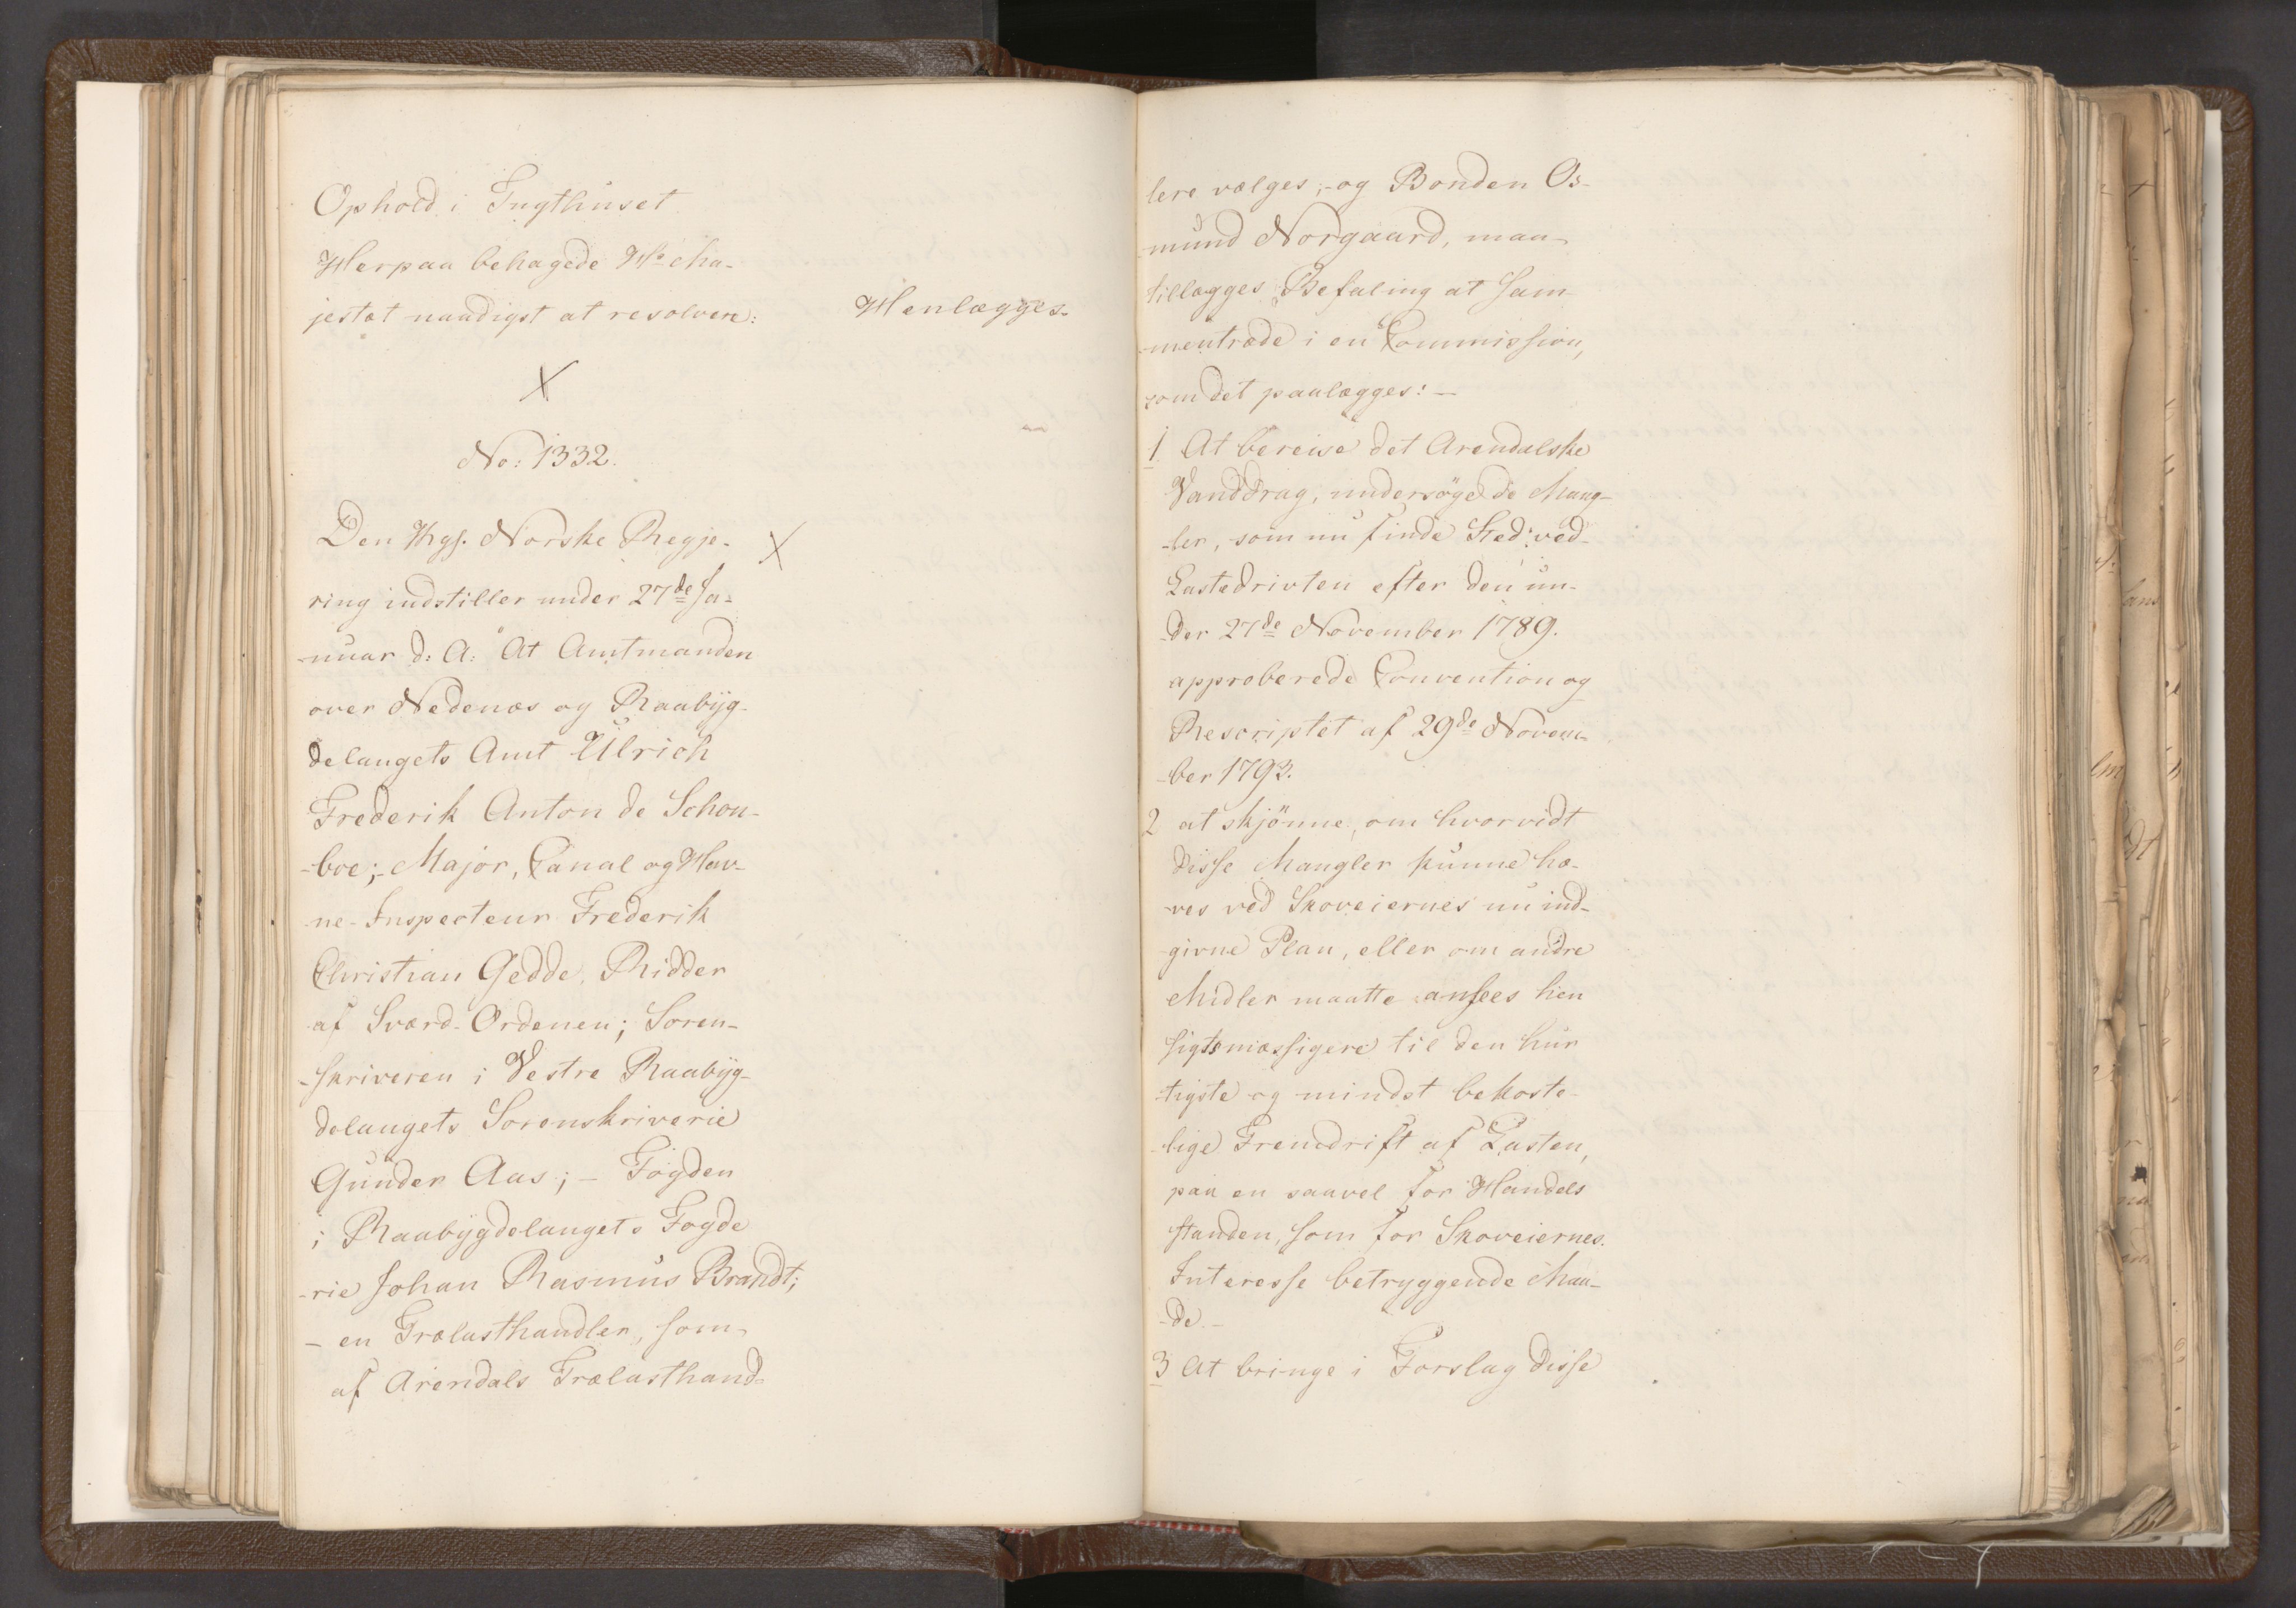 Ophold i Tugthuset
Herpaa behagede Hs Ma-
jestæt naadigst at resolvere:
Henlægges.
X
No: 1332.
Den Kgs. Norske Regje-
X
ring indstiller under 27de Ja-
nuar d: A: At Amtmanden
over Nedenæs og Raabÿg-
delaugets Amt Ulrich
Frederik Anton de Schou-
-boe; - Major, Canal og Hav-
ne-Inspecteur Frederik
Christian Gedde, Ridder
af Sværd-Ordenen; Soren-
-skriveren i Vestre Raabÿg-
delaugets Sorenskriverie
Gunder Aas; - Fogden
i Raabÿgdelaugets Fogde
-rie Johan Rasmus Brandt;
- en Trælasthandler, som
af Arendals Trælasthand-
lere vælges; - og Bonden Os-
mund Norgaard, maa
tillægges Befaling at sam
mentræde i en Commission,
som det paalægges: -
1 At bereise det Arendalske
Vanddrag, undersöge de Mang-
-ler, som nu finde Sted ved
Lastedrivten efter den un-
-der 27de November 1789.
approberede Convention og
Rescriptet af 29de Novem-
-ber 1793.
2 at skjönne, om hvorvidt
disse Mangler kunne hæ-
ves ved Skoveiernes nu ind-
-givne Plan, eller om andre
Midler maatte ansees hen
sigtsmæssigere til den hur
-tigste og mindst bekoste-
lige Fremdrift af Lasten,
paa en saavel for Handels
standen, som for Skoveiernes
Interesse betryggende Maa-
-de. -
3 At bringe i Forslag disse